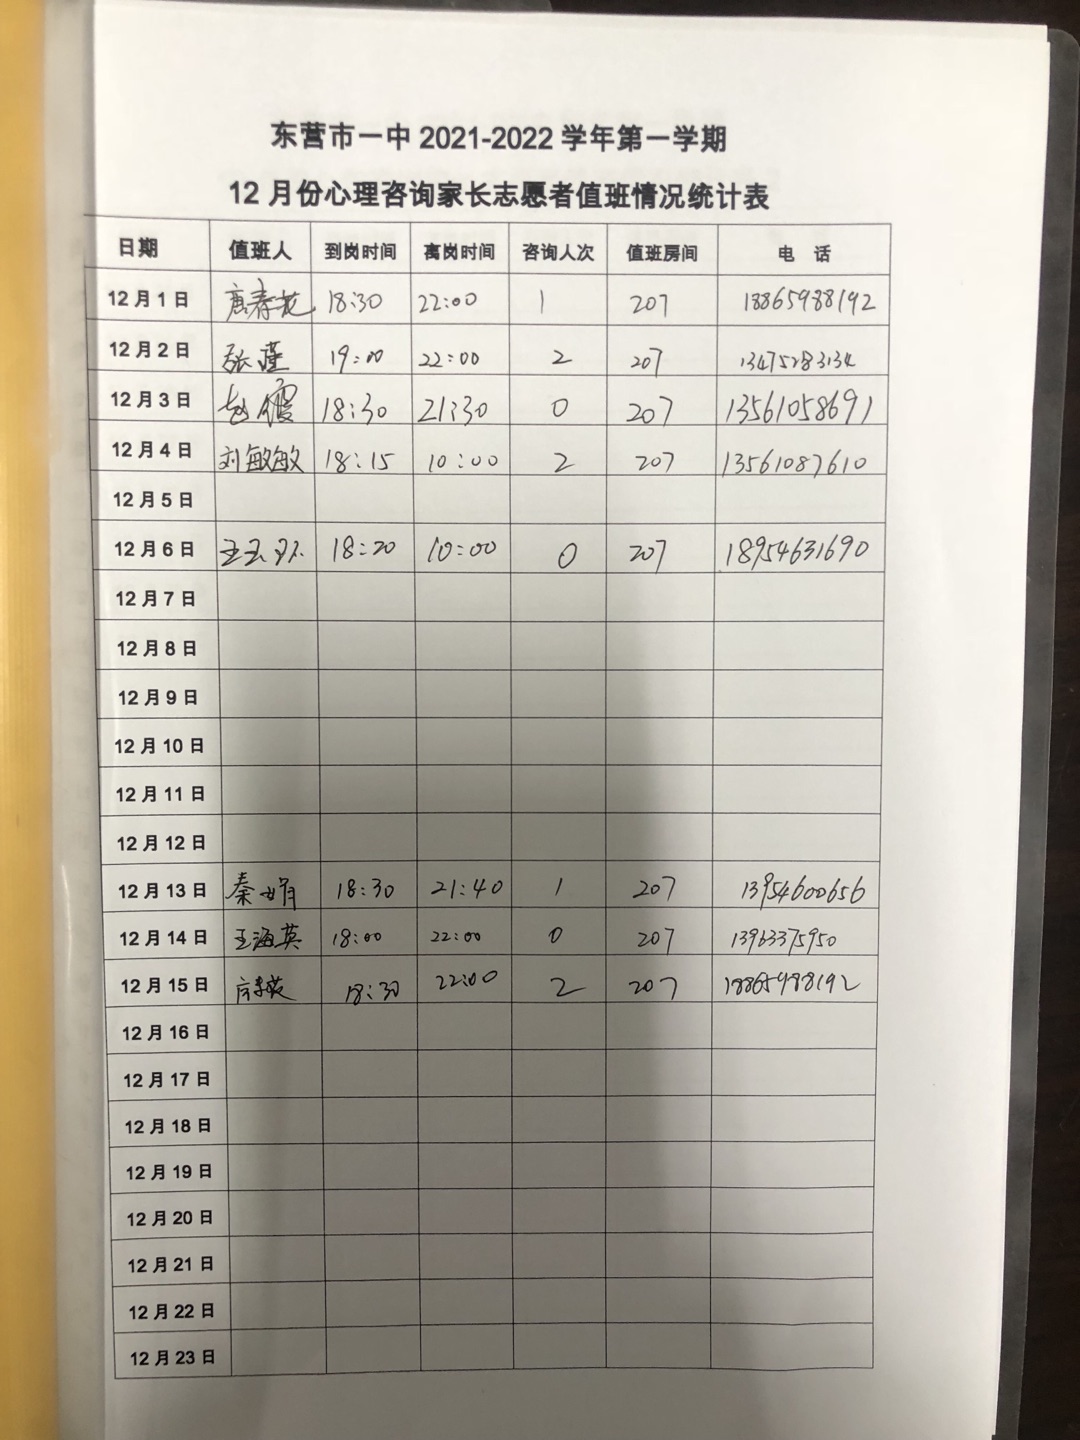 东营市一中 2021-2022 学年第一学期
12 月份心理咨询家长志愿者值班情况统计表
日期 值班人 到岗时间 离岗时间 咨询人次 值班房间 电 话
12 月 1 日 唐春花 18:30 22:00 1 207 18865988192
12 月 2 日 张瑾 19:00 22:00 2 207 13475283134
12 月 3 日 18:30 21:30 0 207 13561058691
12 月 4 日 刘敏敏 18:15 10:00 2 207 13561087610
12 月 5 日
12 月 6 日 18:20 10:00 0 207 18954631690
12 月 7 日
12 月 8 日
12 月 9 日
12 月 10 日
12 月 11 日
12 月 12 日
12 月 13 日 秦娟 18:30 21:40 1 207 13954600656
12 月 14 日 王海英 18:00 22:00 0 207 13963375950
12 月 15 日 18:30 22:00 2 207 18865988192
12 月 16 日
12 月 17 日
12 月 18 日
12 月 19 日
12 月 20 日
12 月 21 日
12 月 22 日
12 月 23 日